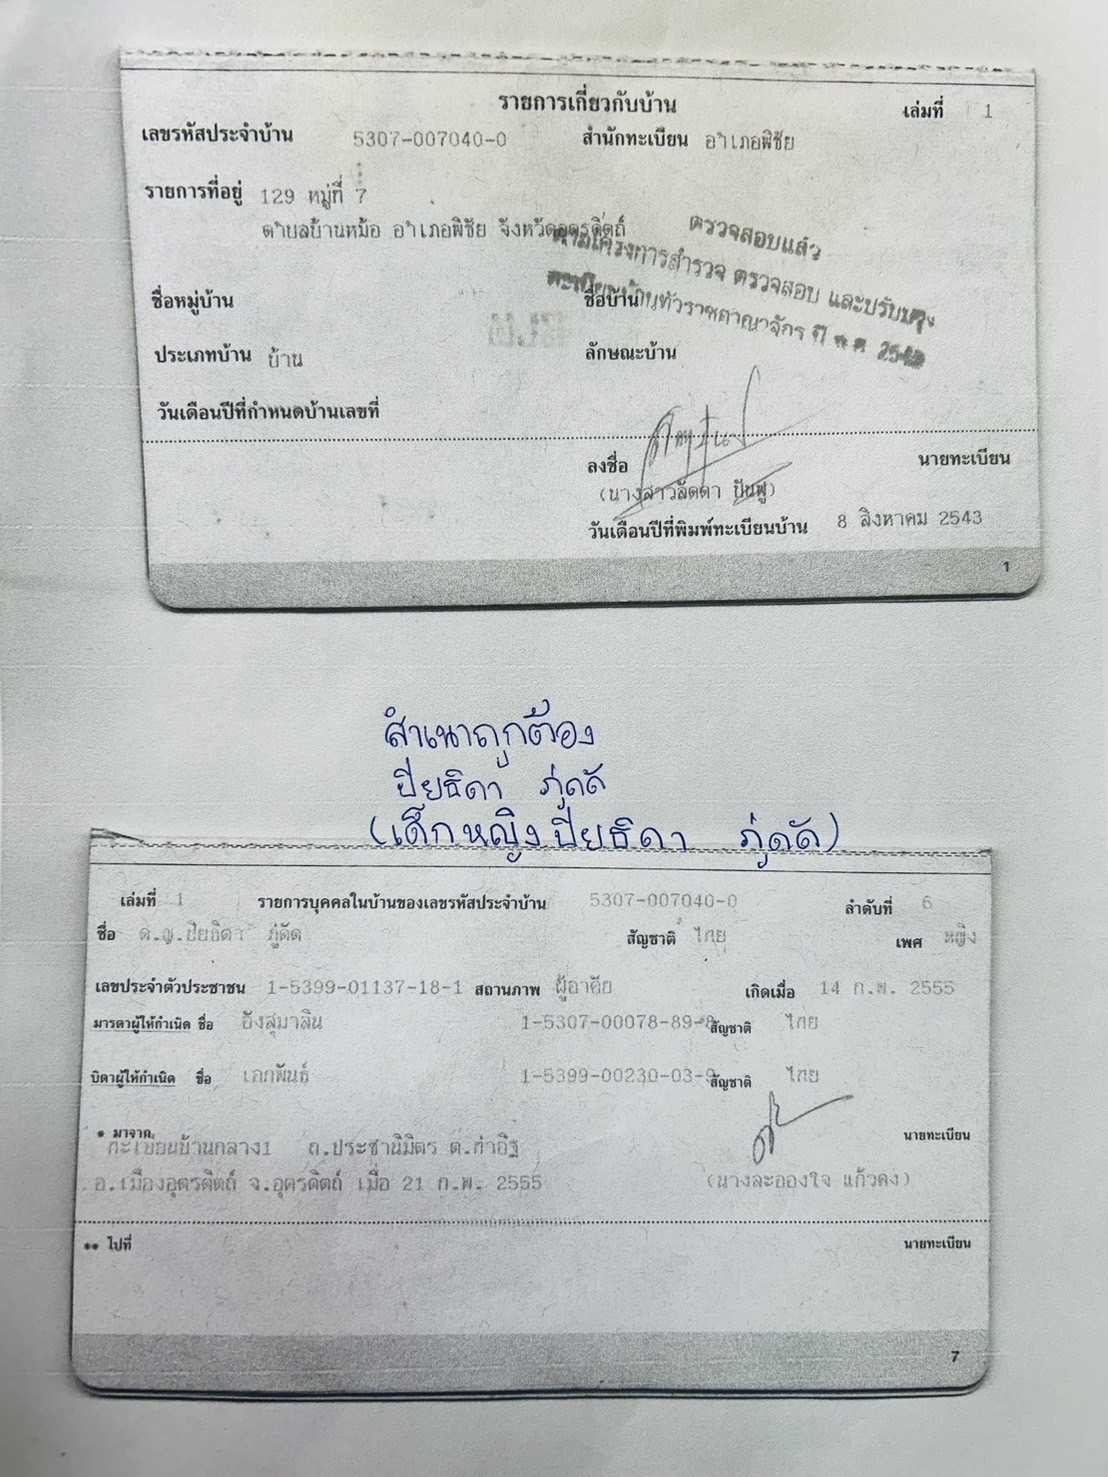 รายการเกี่ยวกับบ้าน เล่มที่ 1
เลขรหัสประจำบ้าน 5307-007040-0 สำนักทะเบียน อำเภอพิชัย
รายการที่อยู่ 129 หมู่ที่ 7
ตำบลบ้านหม้อ อำเภอพิชัย จังหวัดอุตรดิตถ์
ตรวจสอบแล้ว
ตามโครงการสำรวจ ตรวจสอบ และปรับปรุง
ทะเบียนบ้านทั่วราชอาณาจักร ปี พ.ศ. 2543
ชื่อหมู่บ้าน ชื่อบ้าน
ประเภทบ้าน บ้าน ลักษณะบ้าน
วันเดือนปีที่กำหนดบ้านเลขที่
ลงชื่อ นายทะเบียน
(นางสาวลัดดา ปันฟู)
วันเดือนปีที่พิมพ์ทะเบียนบ้าน 8 สิงหาคม 2543
1
สำเนาถูกต้อง
ปิยธิดา ภู่ดัด
(เด็กหญิงปิยธิดา ภู่ดัด)
เล่มที่ 1 รายการบุคคลในบ้านของเลขรหัสประจำบ้าน 5307-007040-0 ลำดับที่ 6
ชื่อ ด.ญ.ปิยธิดา ภู่ดัด สัญชาติ ไทย เพศ หญิง
เลขประจำตัวประชาชน 1-5399-01137-18-1 สถานภาพ ผู้อาศัย เกิดเมื่อ 14 ก.พ. 2555
มารดาผู้ให้กำเนิด ชื่อ อังสุมาลิน 1-5307-00078-89-8 สัญชาติ ไทย
บิดาผู้ให้กำเนิด ชื่อ เภกพันธ์ 1-5399-00230-03-9 สัญชาติ ไทย
* มาจาก นายทะเบียน
ทะเบียนบ้านกลาง1 ถ.ประชานิมิตร ต.ท่าอิฐ
อ.เมืองอุตรดิตถ์ จ.อุตรดิตถ์ เมื่อ 21 ก.พ. 2555 (นางละอองใจ แก้วคง)
** ไปที่ นายทะเบียน
7